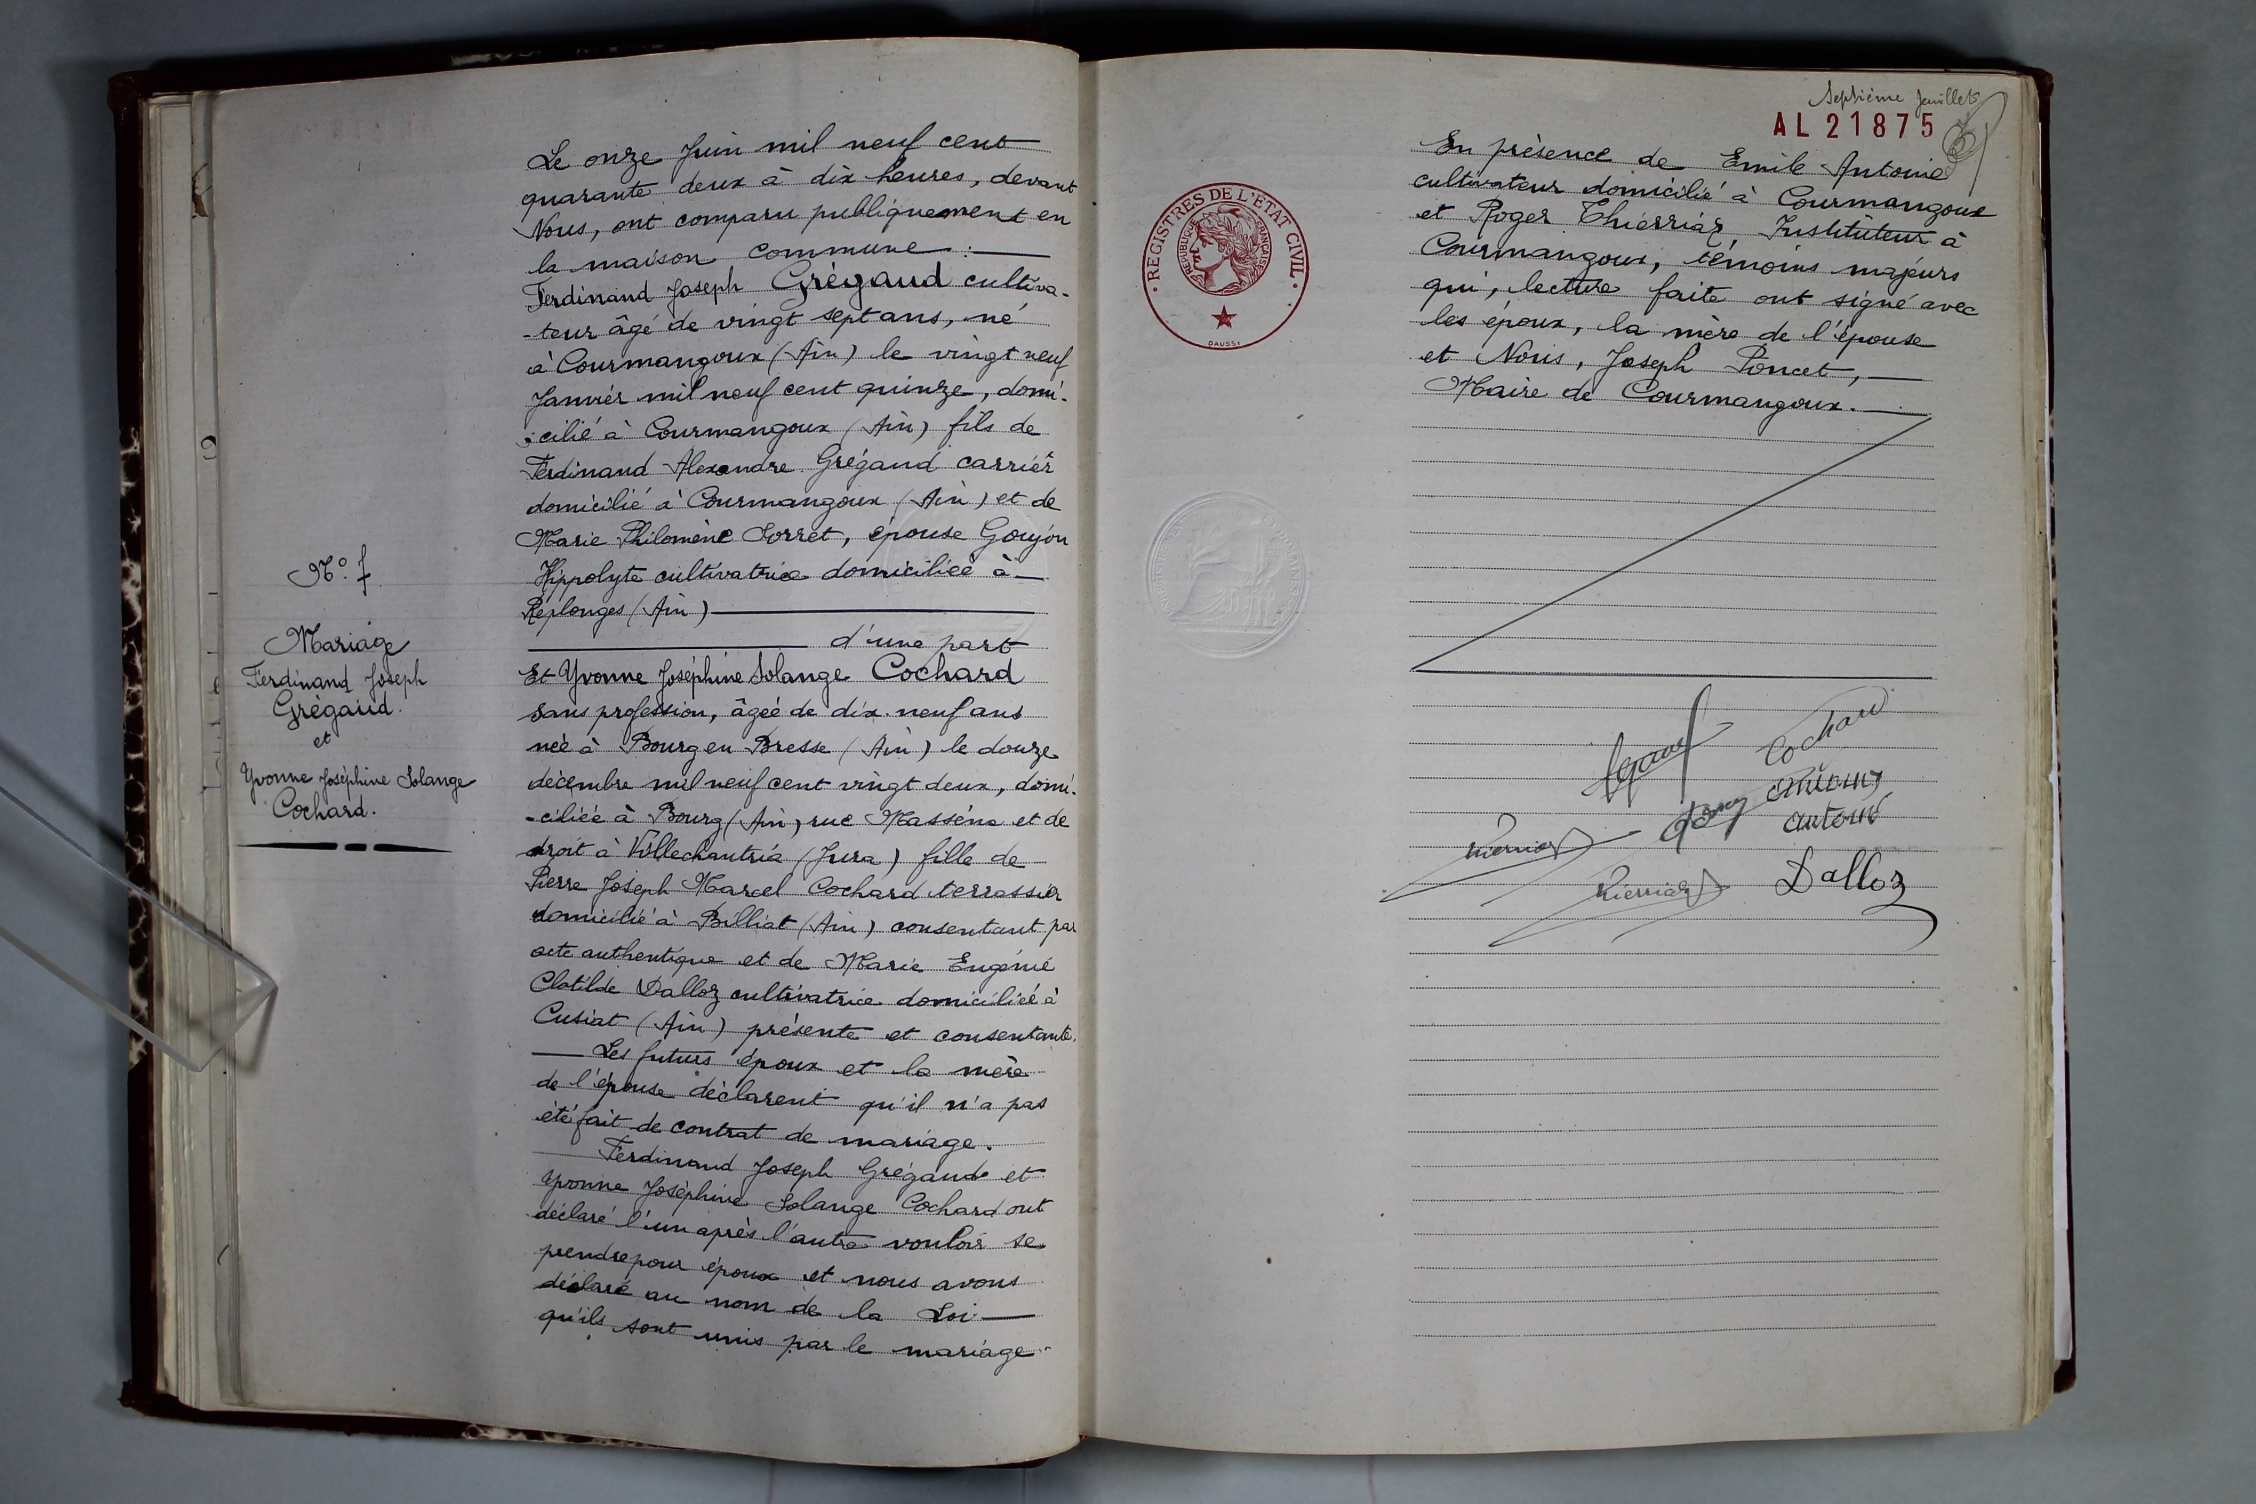 Le onze Juin mil neuf cent
quarante deux à dix heures, devant
Nous, ont comparu publiquement en
la maison commune :
Ferdinand Joseph Grégaud cultiva-
-teur âgé de vingt sept ans, né
à Courmangoux (Ain) le vingt neuf
Janvier mil neuf cent quinze, domi-
-cilié à Courmangoux (Ain) fils de
Ferdinand Alexandre Grégaud carrier
domicilié à Courmangoux (Ain) et de
Marie Philomène Sorret, épouse Goujon
Hippolyte cultivatrice domiciliée à
Replonges (Ain)
d'une part
Et Yvonne Joséphine Solange Cochard
sans profession, âgée de dix-neuf ans
née à Bourg en Bresse (Ain) le douze
décembre mil neuf cent vingt deux, domi-
-ciliée à Bourg (Ain) rue Masséna et de
droit à Villechantria (Jura) fille de
Pierre Joseph Marcel Cochard terrassier
domicilié à Billiat (Ain) consentant par
acte authentique et de Marie Eugénie
Clotilde Dalloz cultivatrice domiciliée à
Cusiat (Ain) présente et consentante.
Les futurs époux et la mère
de l'épouse déclarent qu'il n'a pas
été fait de contrat de mariage.
Ferdinand Joseph Grégaud et
Yvonne Joséphine Solange Cochard ont
déclaré l'un après l'autre vouloir se
prendre pour époux et nous avons
déclaré au nom de la Loi
qu'ils sont unis par le mariage
No. 7
Mariage
Ferdinand Joseph
Grégaud.
et
Yvonne Joséphine Solange
Cochard.
Septième feuillet
AL 21875
REGISTRES DE L'ETAT CIVIL
REPUBLIQUE FRANÇAISE
DAUSSY
En présence de Emile Antoine
cultivateur domicilié à Courmangoux
et Roger Thierriaz, Instituteur à
Courmangoux, témoins majeurs
qui, lecture faite ont signé avec
les époux, la mère de l'épouse
et Nous, Joseph Poncet,
Maire de Courmangoux.
Cochard
Antoine
Dalloz